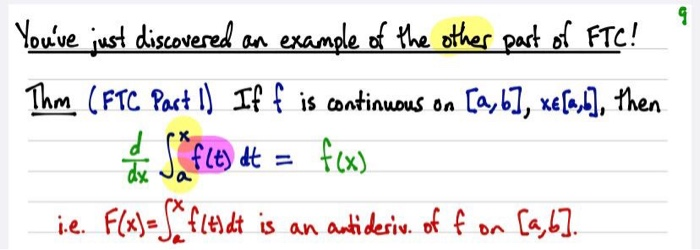 9
You've just discovered an example of the other part of FTC!
Thm (FTC Part 1) If f is continuous on [a,b], x∈[a,b], then
d/dx ∫_a^x f(t) dt = f(x)
i.e. F(x)=∫_a^x f(t)dt is an antideriv. of f on [a,b].